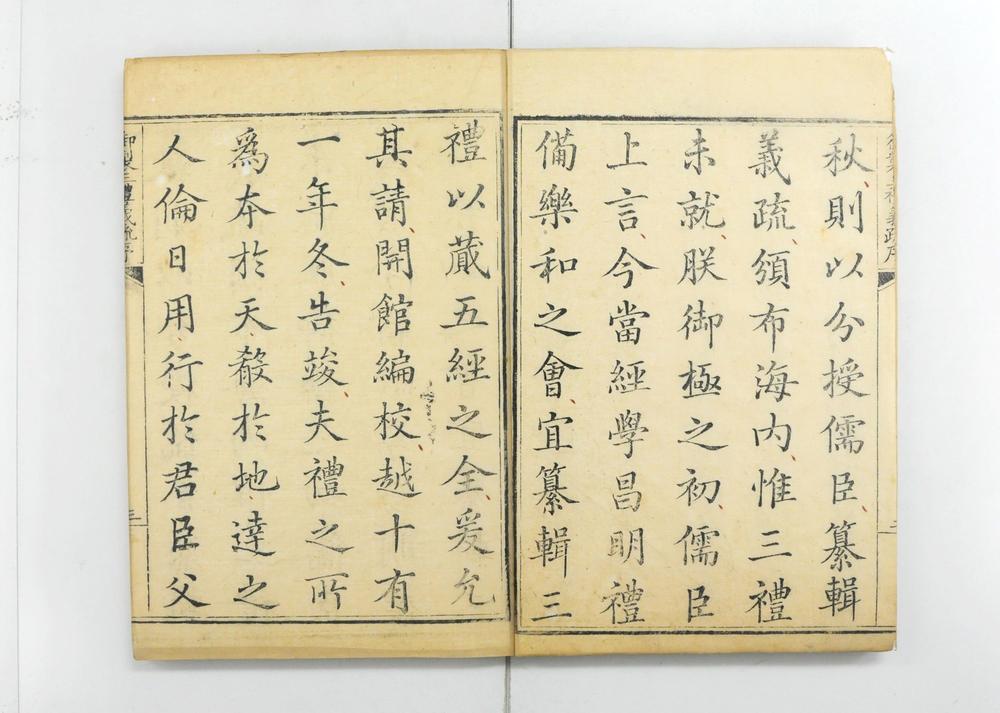 秋則以分授儒臣纂輯
義疏頒布海內惟三禮
未就朕御極之初儒臣
上言今當經學昌明禮
備樂和之會宜纂輯三
禮以蕆五經之全爰允
其請開館編校越十有
一年冬告竣夫禮之所
為本於天殽於地達之
人倫日用行於君臣父
御製三禮義疏序
三